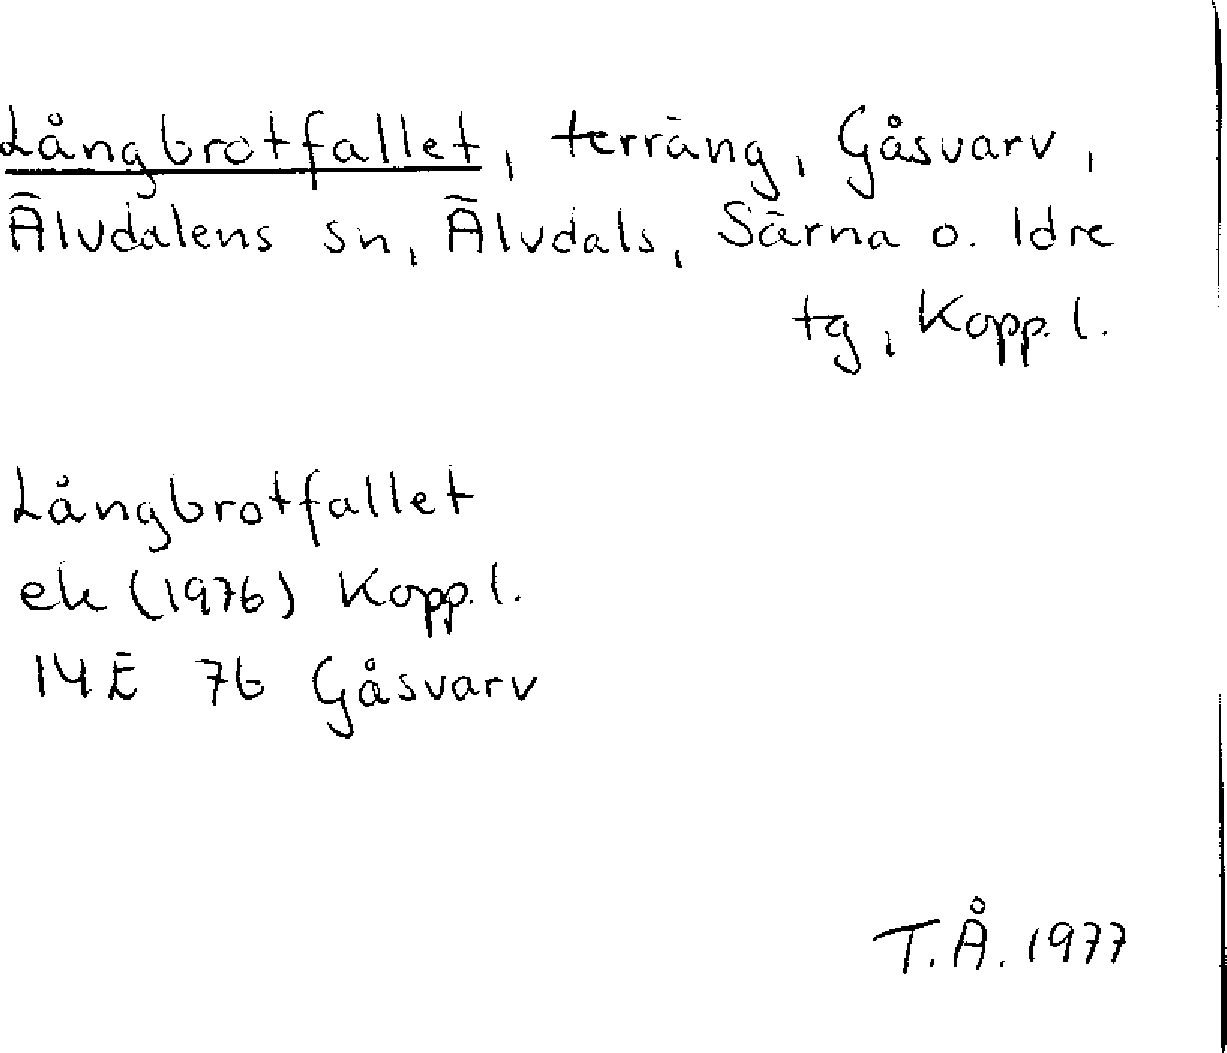 Långbrotfallet, terräng, Gåsvarv,
Älvdalens sn, Älvdals, Särna o. Idre
tg, Kopp. l.
Långbrotfallet
ek (1976) Kopp. l.
14E 7b Gåsvarv
T.Å. 1977